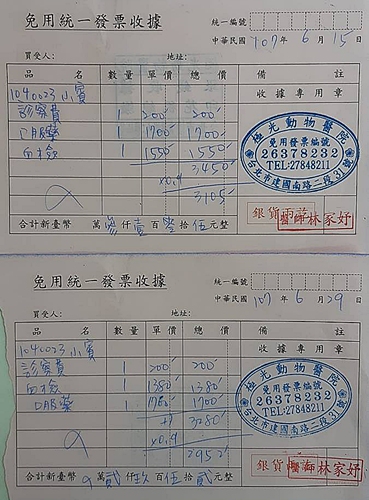 免用統一發票收據
統一編號
中華民國 107 年 6 月 15 日
買受人： 地址：
品 名 數量 單價 總價 備 註
1040023 小賓 收據專用章
診察費 1 200 200
1 1700 1700
血檢 1 1550 1550
3450
x0.9
3105
極光動物醫院
免用發票編號
26378232
TEL:27848211
台北市建國南路二段31號
銀貨兩訖
醫師林家妤
合計新臺幣 萬參仟壹佰零拾伍元整
免用統一發票收據
統一編號
中華民國 107 年 6 月 29 日
買受人： 地址：
品 名 數量 單價 總價 備 註
1040023 小賓 收據專用章
診察費 1 200 200
血檢 1 1380 1380
1 1700 1700
3280
x0.9
2952
極光動物醫院
免用發票編號
26378232
TEL:27848211
台北市建國南路二段31號
銀貨兩訖
醫師林家妤
合計新臺幣 萬貳仟玖百伍拾貳元整